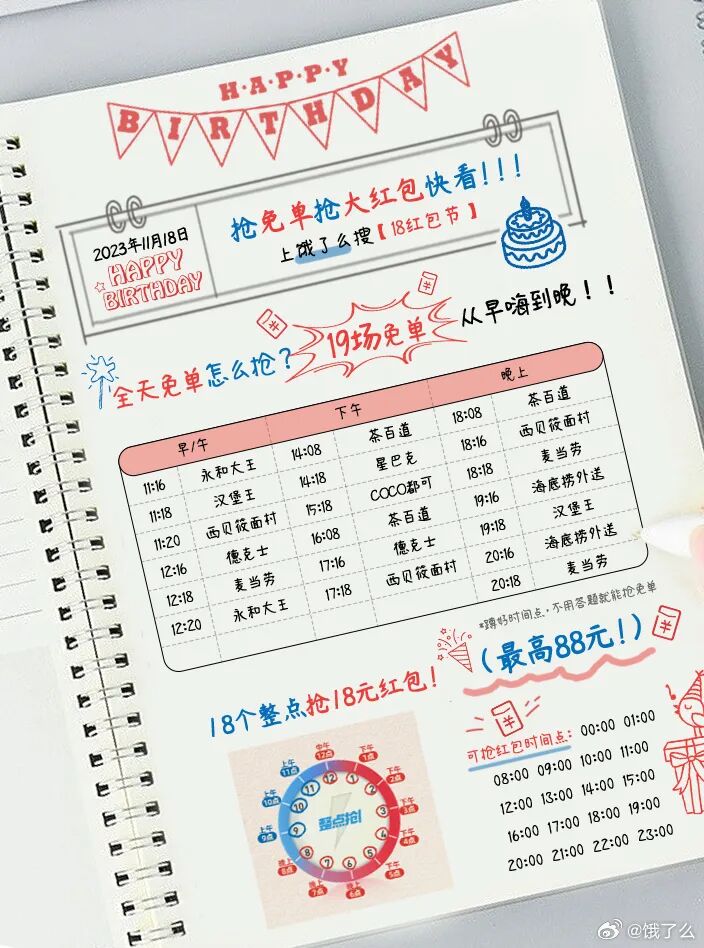 H·A·P·P·Y
BIRTHDAY
2023年11月18日
HAPPY
BIRTHDAY
抢免单抢大红包快看!!!
上饿了么搜【18红包节】
全天免单怎么抢?
19场免单
从早嗨到晚!!
早/午 下午 晚上
11:16 永和大王 14:08 茶百道 18:08 茶百道
11:18 汉堡王 14:18 星巴克 18:16 西贝莜面村
11:20 西贝莜面村 15:18 COCO都可 18:18 麦当劳
12:16 德克士 16:08 茶百道 19:16 海底捞外送
12:18 麦当劳 17:16 德克士 19:18 汉堡王
12:20 永和大王 17:18 西贝莜面村 20:16 海底捞外送
20:18 麦当劳
*蹲好时间点,不用答题就能抢免单
(最高88元!)
18个整点抢18元红包!
中午
12点
下午
1点
下午
2点
下午
3点
下午
4点
下午
5点
晚上
6点
晚上
7点
晚上
8点
上午
9点
上午
10点
上午
11点
12
1
2
3
4
5
6
7
8
9
10
11
整点抢!
可抢红包时间点: 00:00 01:00
08:00 09:00 10:00 11:00
12:00 13:00 14:00 15:00
16:00 17:00 18:00 19:00
20:00 21:00 22:00 23:00
@饿了么